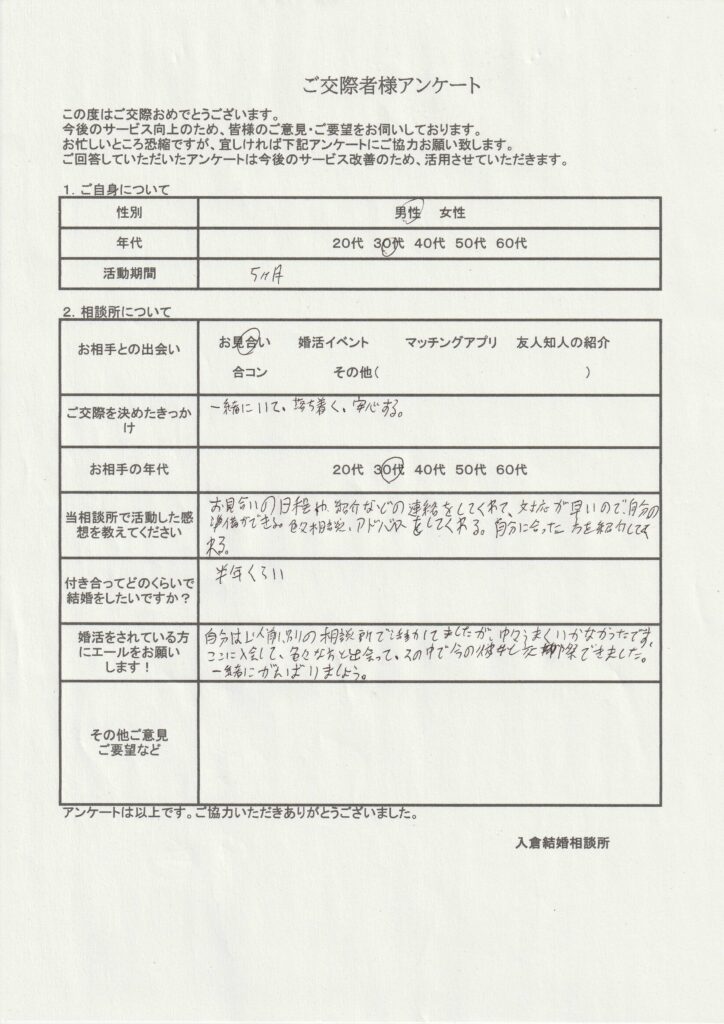 ご交際者様アンケート
この度はご交際おめでとうございます。
今後のサービス向上のため、皆様のご意見・ご要望をお伺いしております。
お忙しいところ恐縮ですが、宜しければ下記アンケートにご協力お願い致します。
ご回答していただいたアンケートは今後のサービス改善のため、活用させていただきます。
1. ご自身について
性別 男性 女性
年代 20代 30代 40代 50代 60代
活動期間 5ヶ月
2. 相談所について
お相手との出会い お見合い 婚活イベント マッチングアプリ 友人知人の紹介
合コン その他( )
ご交際を決めたきっか
け
一緒にいて、落ち着く、安心する。
お相手の年代 20代 30代 40代 50代 60代
当相談所で活動した感
想を教えてください
お見合いの日程や、紹介などの連絡をしてくれて、対応が早いので、自分の
準備ができる。色々相談、アドバイスをしてくれる。自分に合った方を紹介してく
れる。
付き合ってどのくらいで
結婚をしたいですか？
半年くらい
婚活をされている方
にエールをお願い
します！
自分は以前、別の相談所で活動してましたが、中々うまくいかなかったです。
ここに入会して、色々な方と出会って、その中で今の彼女と交際できました。
一緒にがんばりましょう。
その他ご意見
ご要望など
アンケートは以上です。ご協力いただきありがとうございました。
入倉結婚相談所